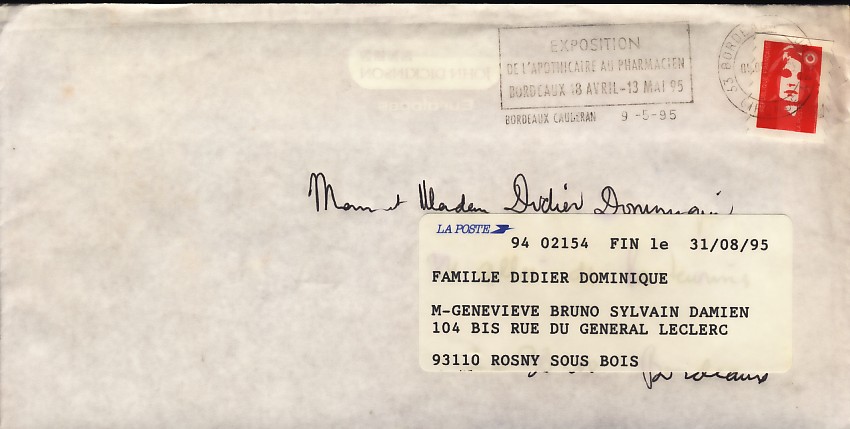 EXPOSITION
DE L'APOTHICAIRE AU PHARMACIEN
BORDEAUX 18 AVRIL-13 MAI 95
BORDEAUX CAUDERAN 9 -5-95
33 BORDEAUX
et Madam Didier Dominique
LA POSTE
94 02154 FIN le 31/08/95
FAMILLE DIDIER DOMINIQUE
M-GENEVIEVE BRUNO SYLVAIN DAMIEN
104 BIS RUE DU GENERAL LECLERC
93110 ROSNY SOUS BOIS
Bordeaux